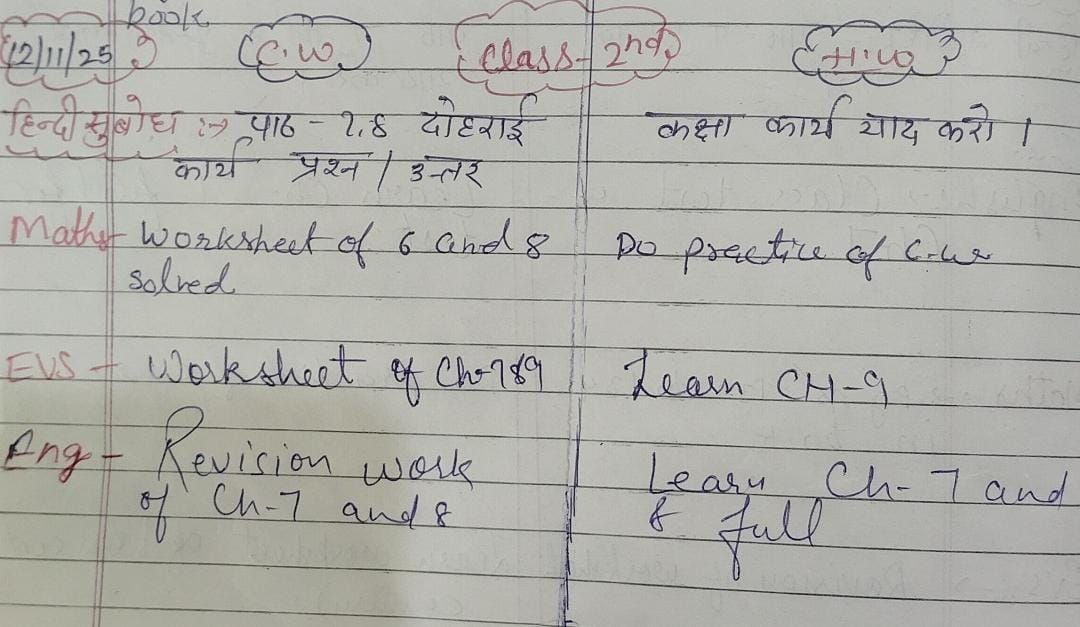 book
12/11/25 C.W Class-2nd H.W
हिन्दी सुबोध :→ पाठ - 7,8 दोहराई कक्षा कार्य याद करो ।
कार्य प्रश्न / उत्तर
Maths- Worksheet of 6 and 8 Do practice of C.w
solved
EVS - Worksheet of Ch-7&9 Learn CH-9
Eng - Revision work Learn Ch-7 and
of Ch-7 and 8 8 full